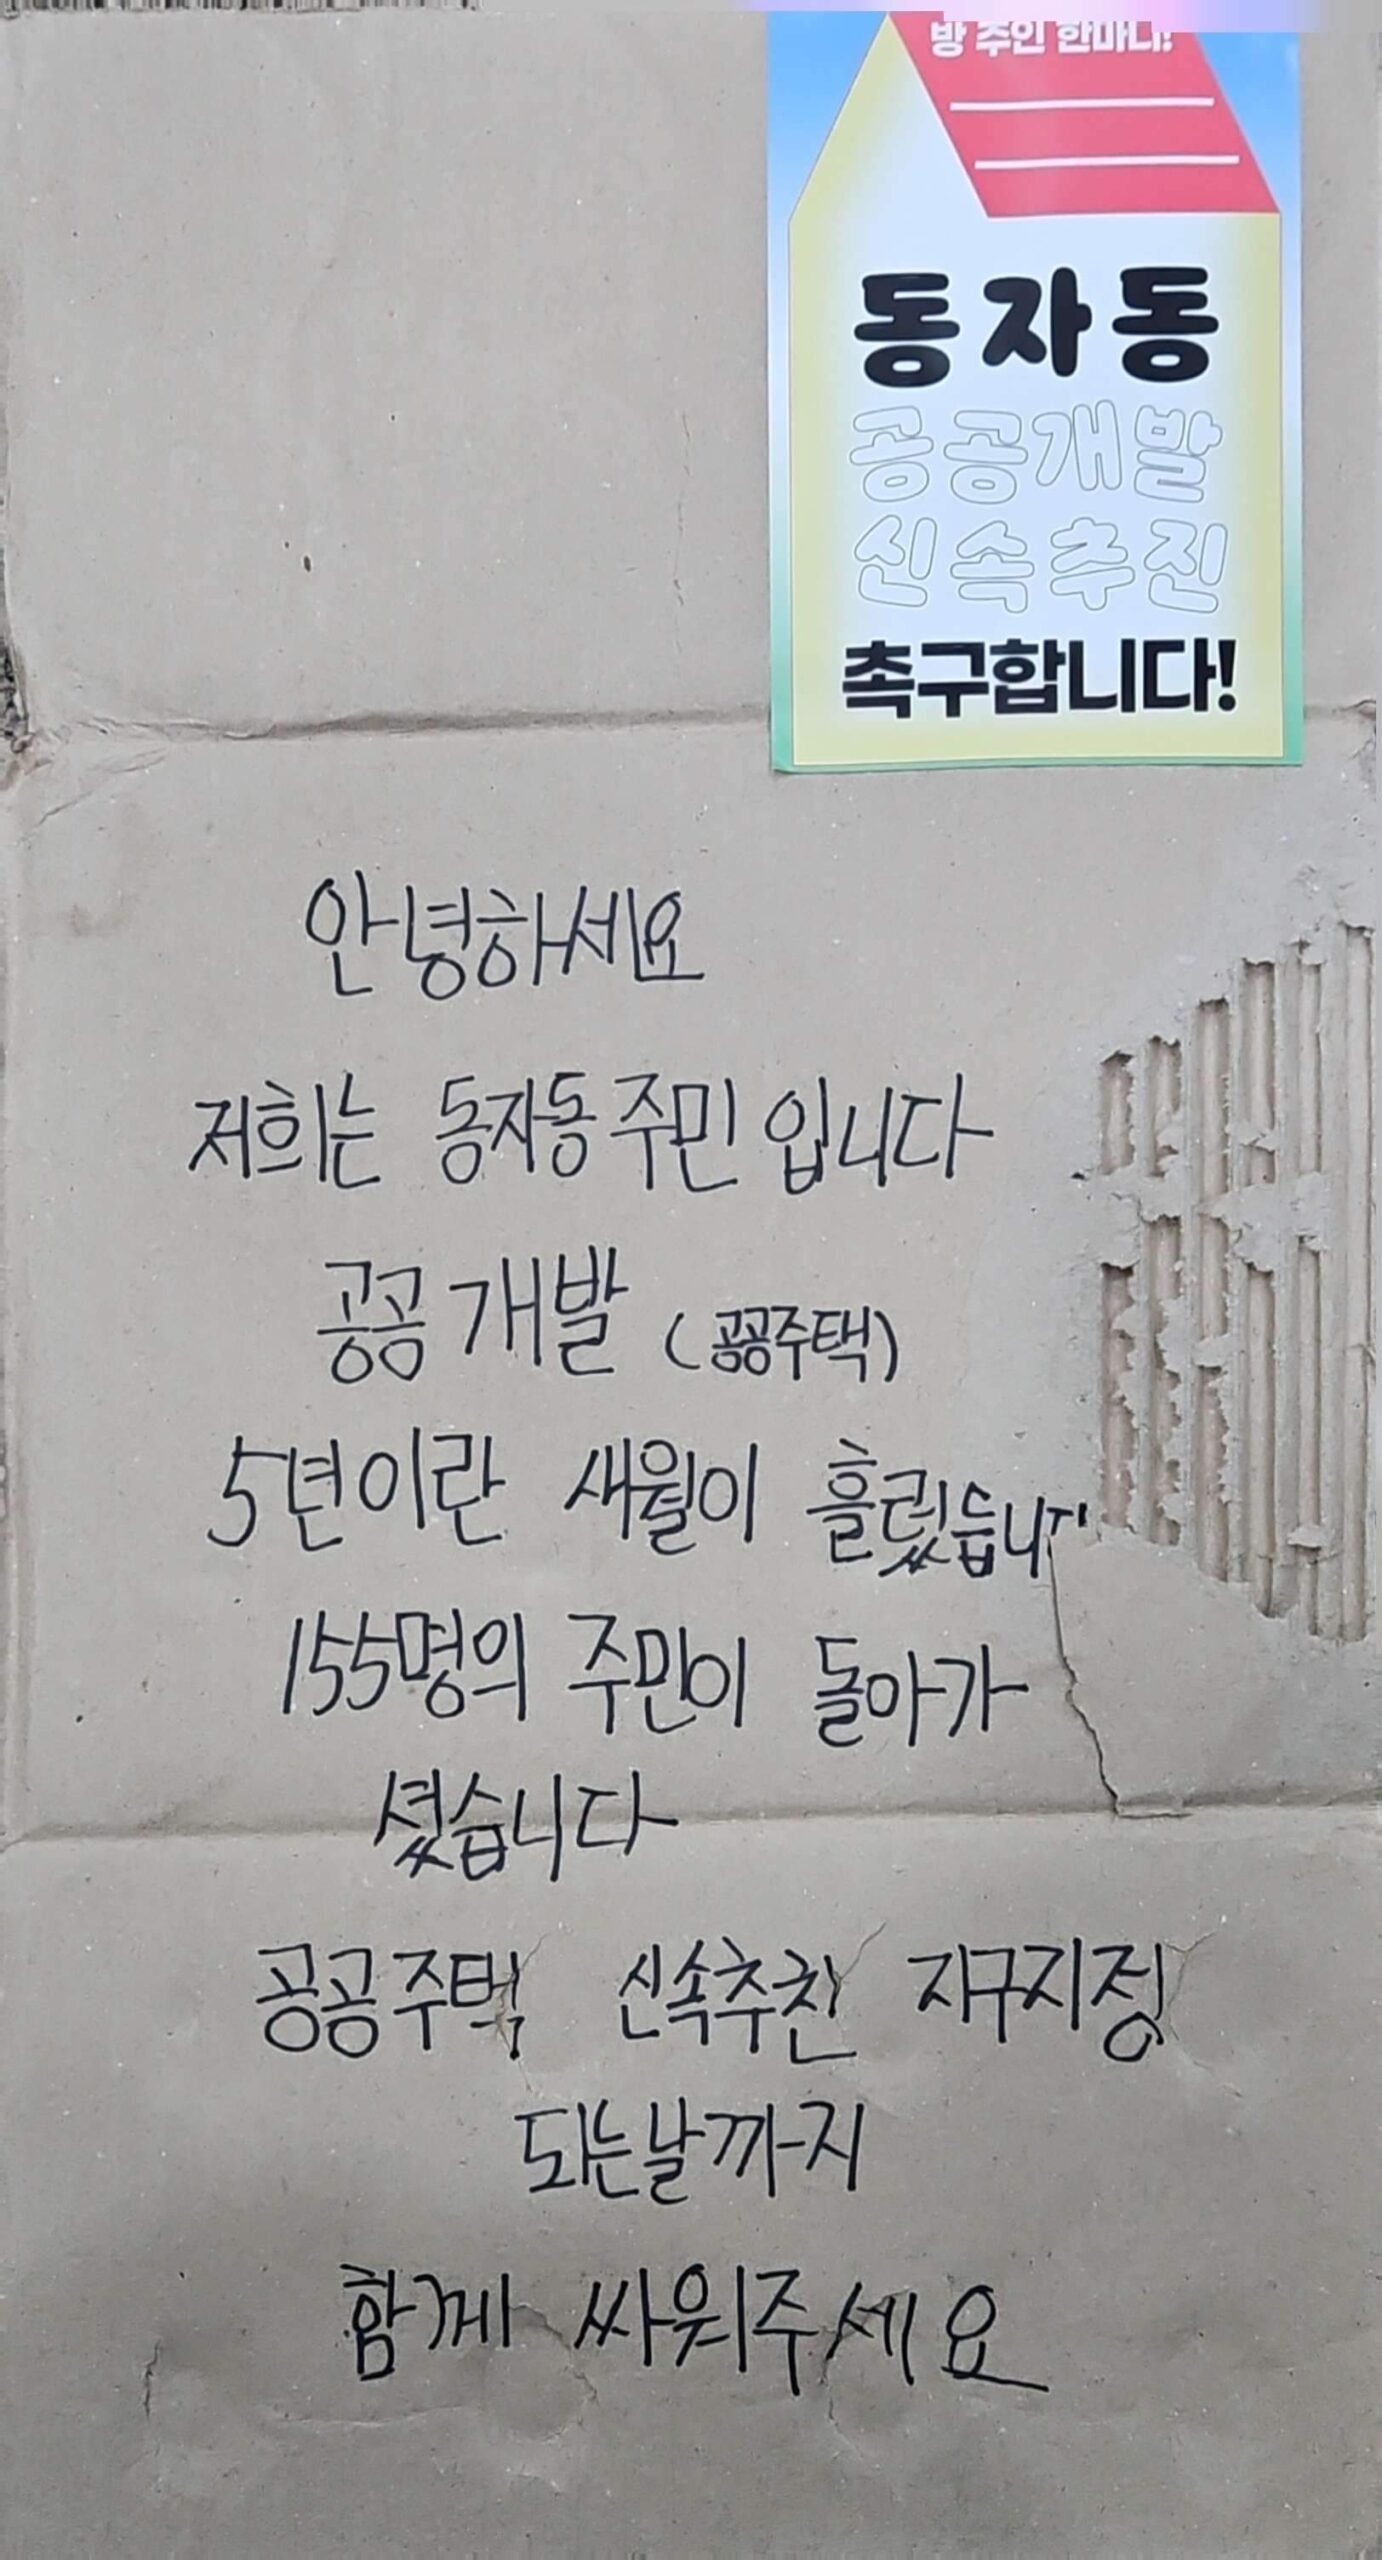 방 주인 한마디!
동자동
공공개발
신속추진
촉구합니다!
안녕하세요
저희는 동자동 주민 입니다
공공 개발 (공공주택)
5년이란 새월이 흘렀습니다
155명의 주민이 돌아가
셨습니다
공공주택 신속추친 지구지정
되는날까지
함께 싸워주세요